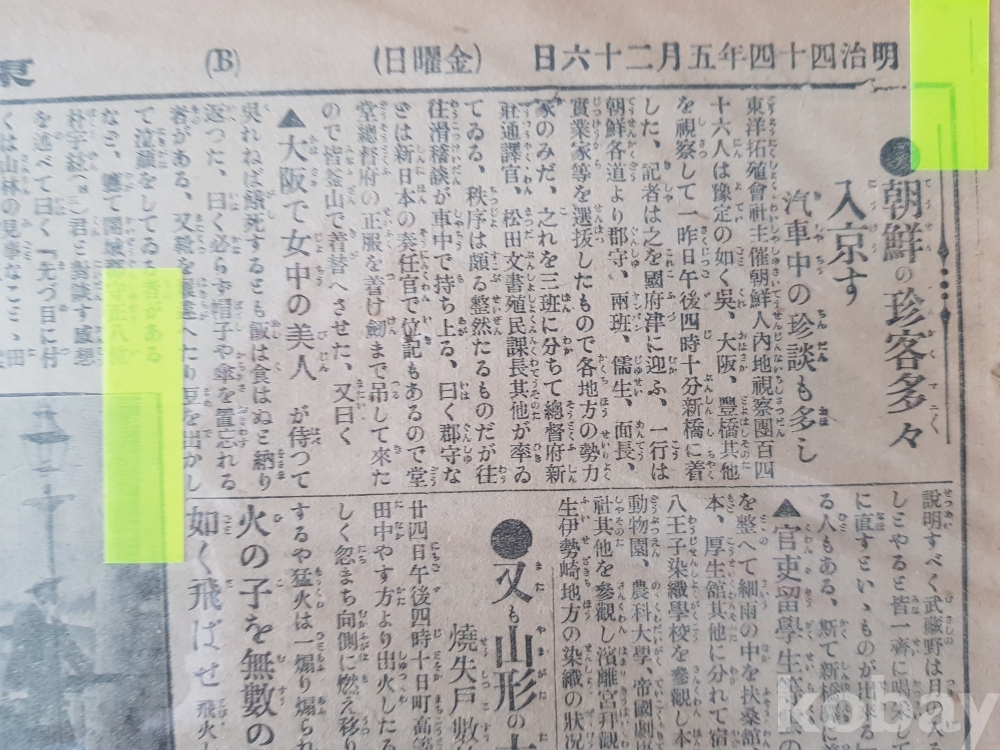 明治四十四年五月二十六日
(金曜日)
(B)
東
●朝鮮の珍客多々
入京す
汽車中の珍談も多し
東洋拓殖會社主催朝鮮人內地視察團百四
十六人は豫定の如く吳、大阪、豐橋其他
を視察して一昨日午後四時十分新橋に着
した、記者は之を國府津に迎ふ、一行は
朝鮮各道より郡守、兩班、儒生、面長、
實業家等を選拔したもので各地方の勢力
家のみだ、之れを三班に分ちて總督府新
莊通譯官、松田文書殖民課長其他が率ゐ
てゐる、秩序は頗る整然たるものだが往
往滑稽談が車中で持ち上る、曰く郡守な
どは新日本の奏任官で位記もあるので堂
堂總督府の正服を着け劍まで吊して來た
ので皆釜山で着替へさせた、又曰く
▲大阪で女中の美人 が侍つて
吳れねば餓死するとも飯は食はぬと納り
返つた、曰く必らず帽子や傘を置忘れる
者がある、又
て泣顏をしてゐる者がある
なぞ、軈て開城郡守正八位
朴宇鉉君と對談す感想
を述べて曰く『先づ目に付
くは山林の見事なこと、田
說明すべく武藏野は月の入
しとやると皆一齊に喝采し
に直すといゝものが出來る
る人もある、斯て新橋に
▲官吏留學生等の
を整へて細雨の中を扶桑館
本、厚生館其他に分れて宿
八王子染織學校を參觀し本
動物園、農科大學、帝國劇
社其他を參觀し濱離宮拜觀
生伊勢崎地方の染織の狀況
●又も山形の大
燒失戶數
廿四日午後四時十日町高
田中やす方より出火したる
しく忽まち向側に燃え移り
するや猛火は一煽り煽られ
火の子を無數の
如く飛ばせ 飛火し
kobay